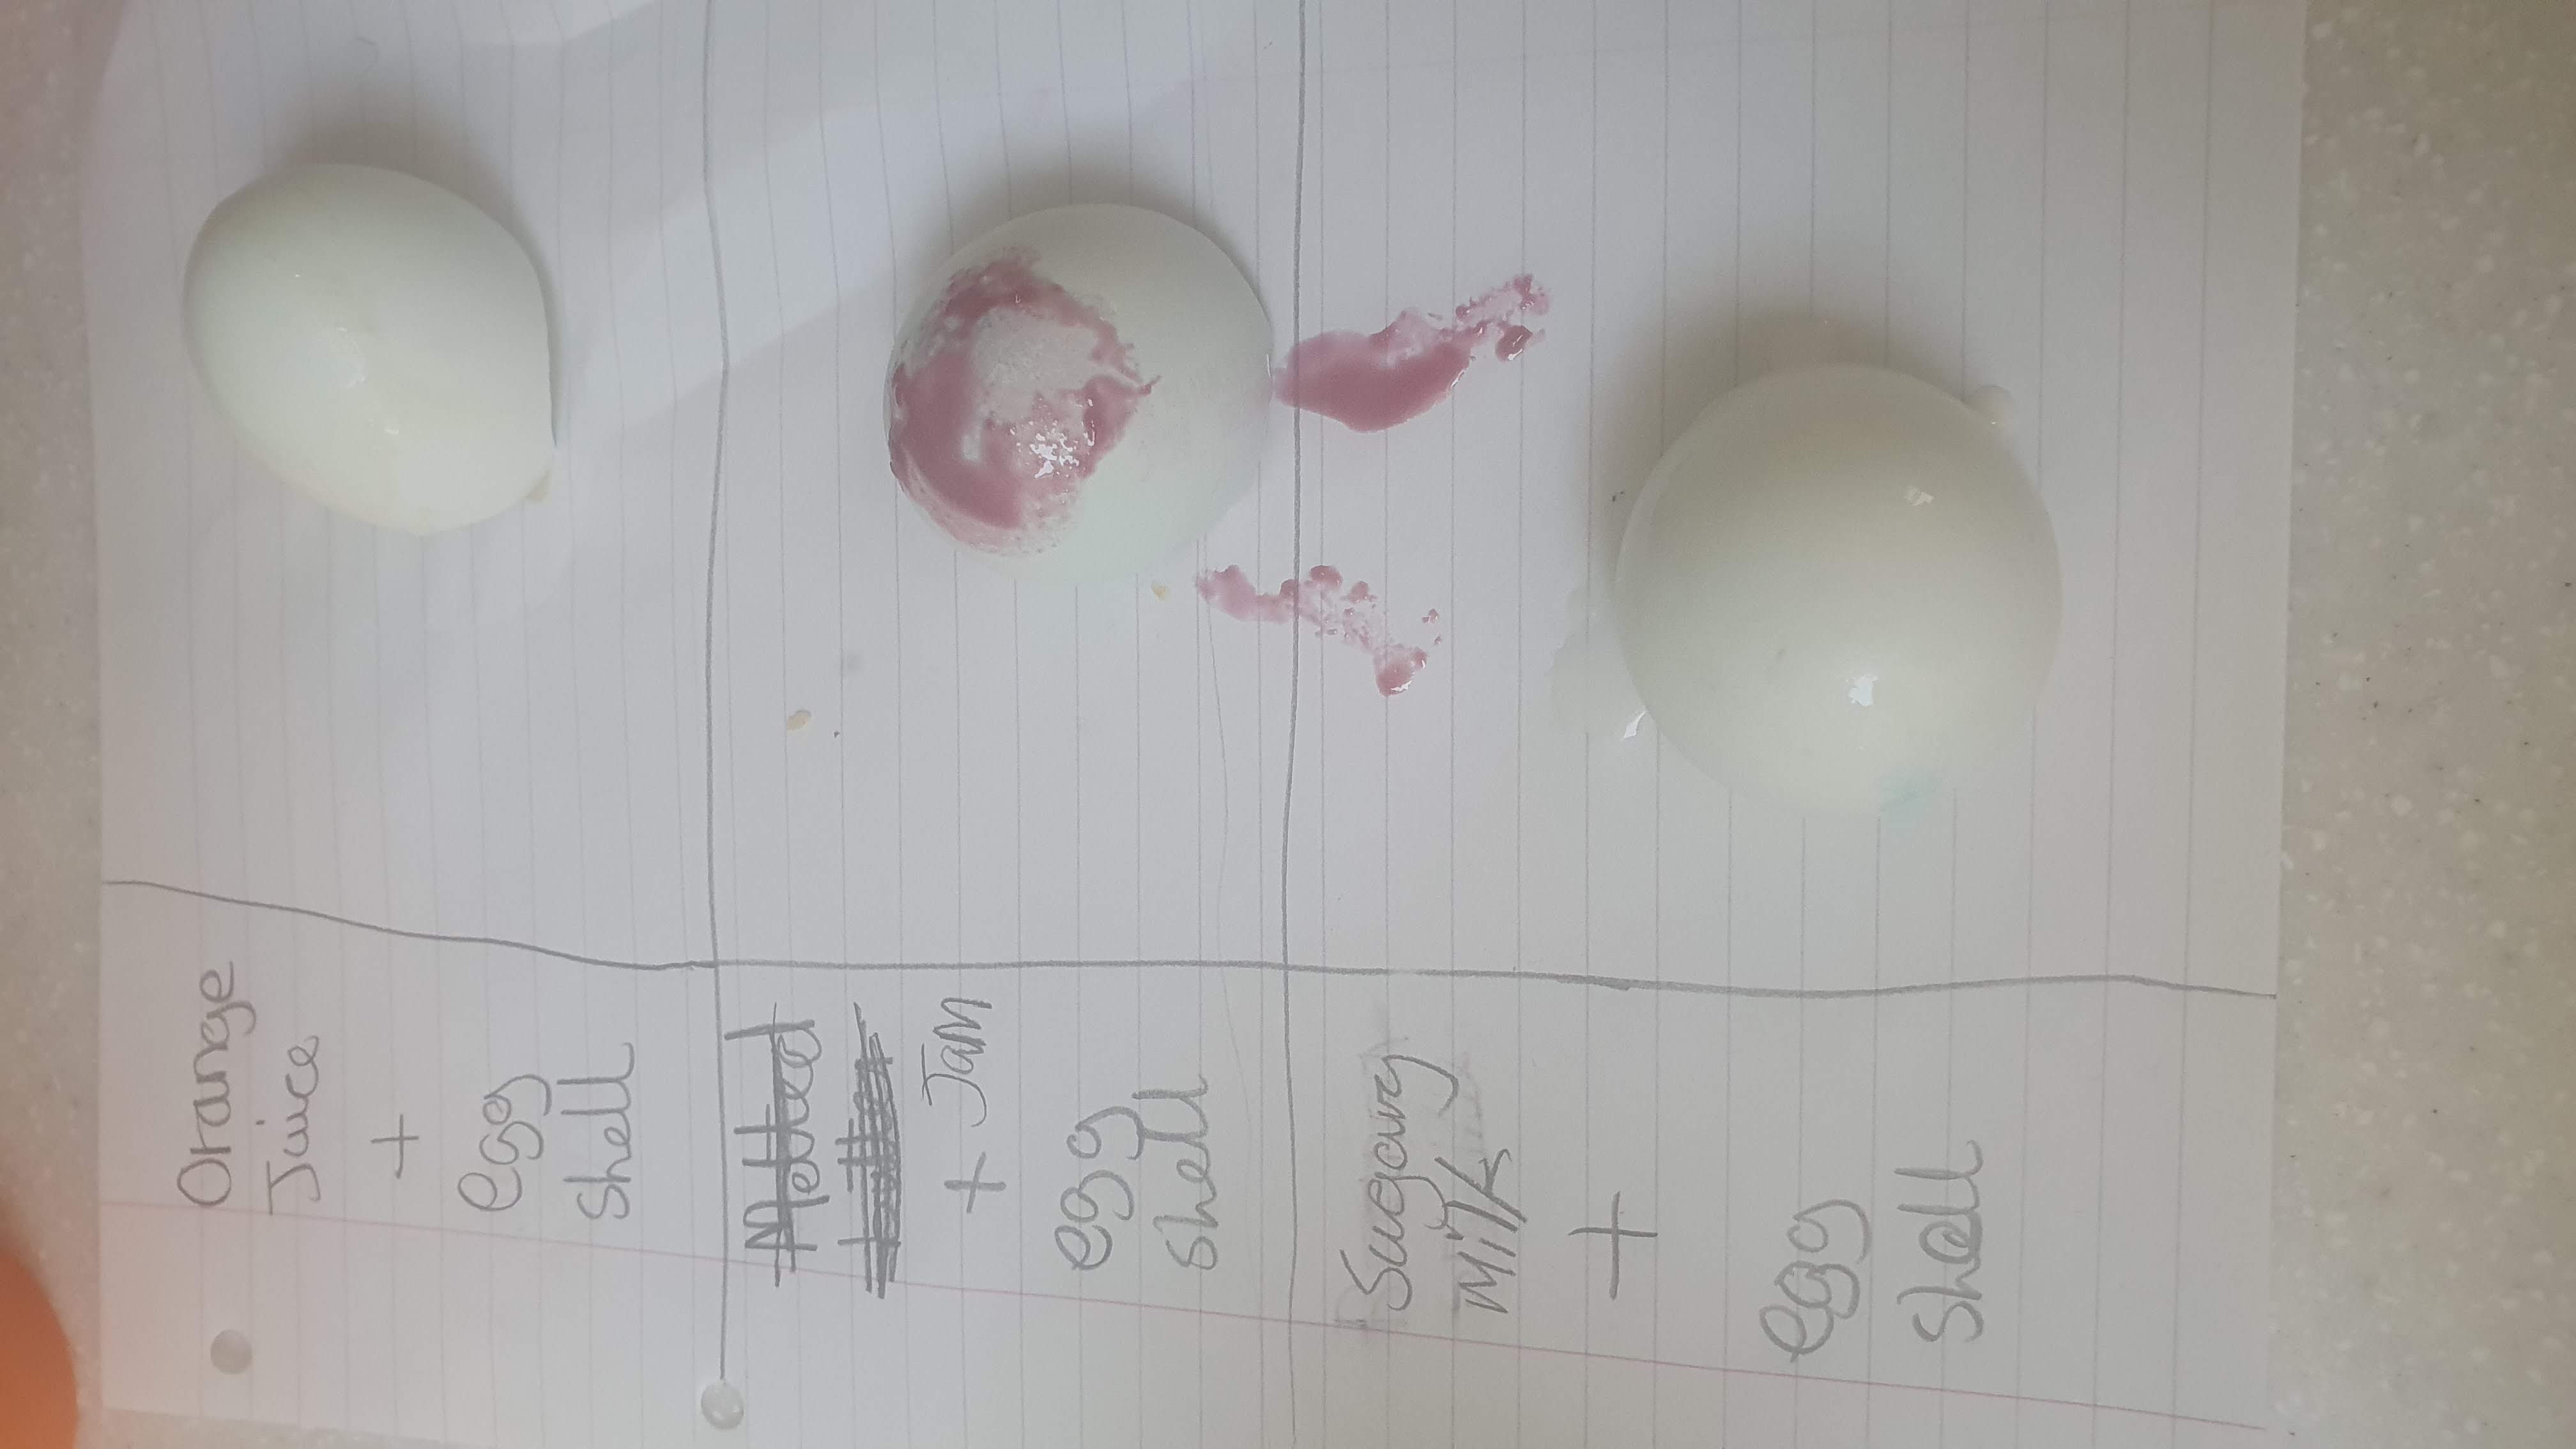 Orange
Juice
+
egg
shell
Melted
butter
+ Jam
egg
shell
Sugary
Milk
+
egg
shell